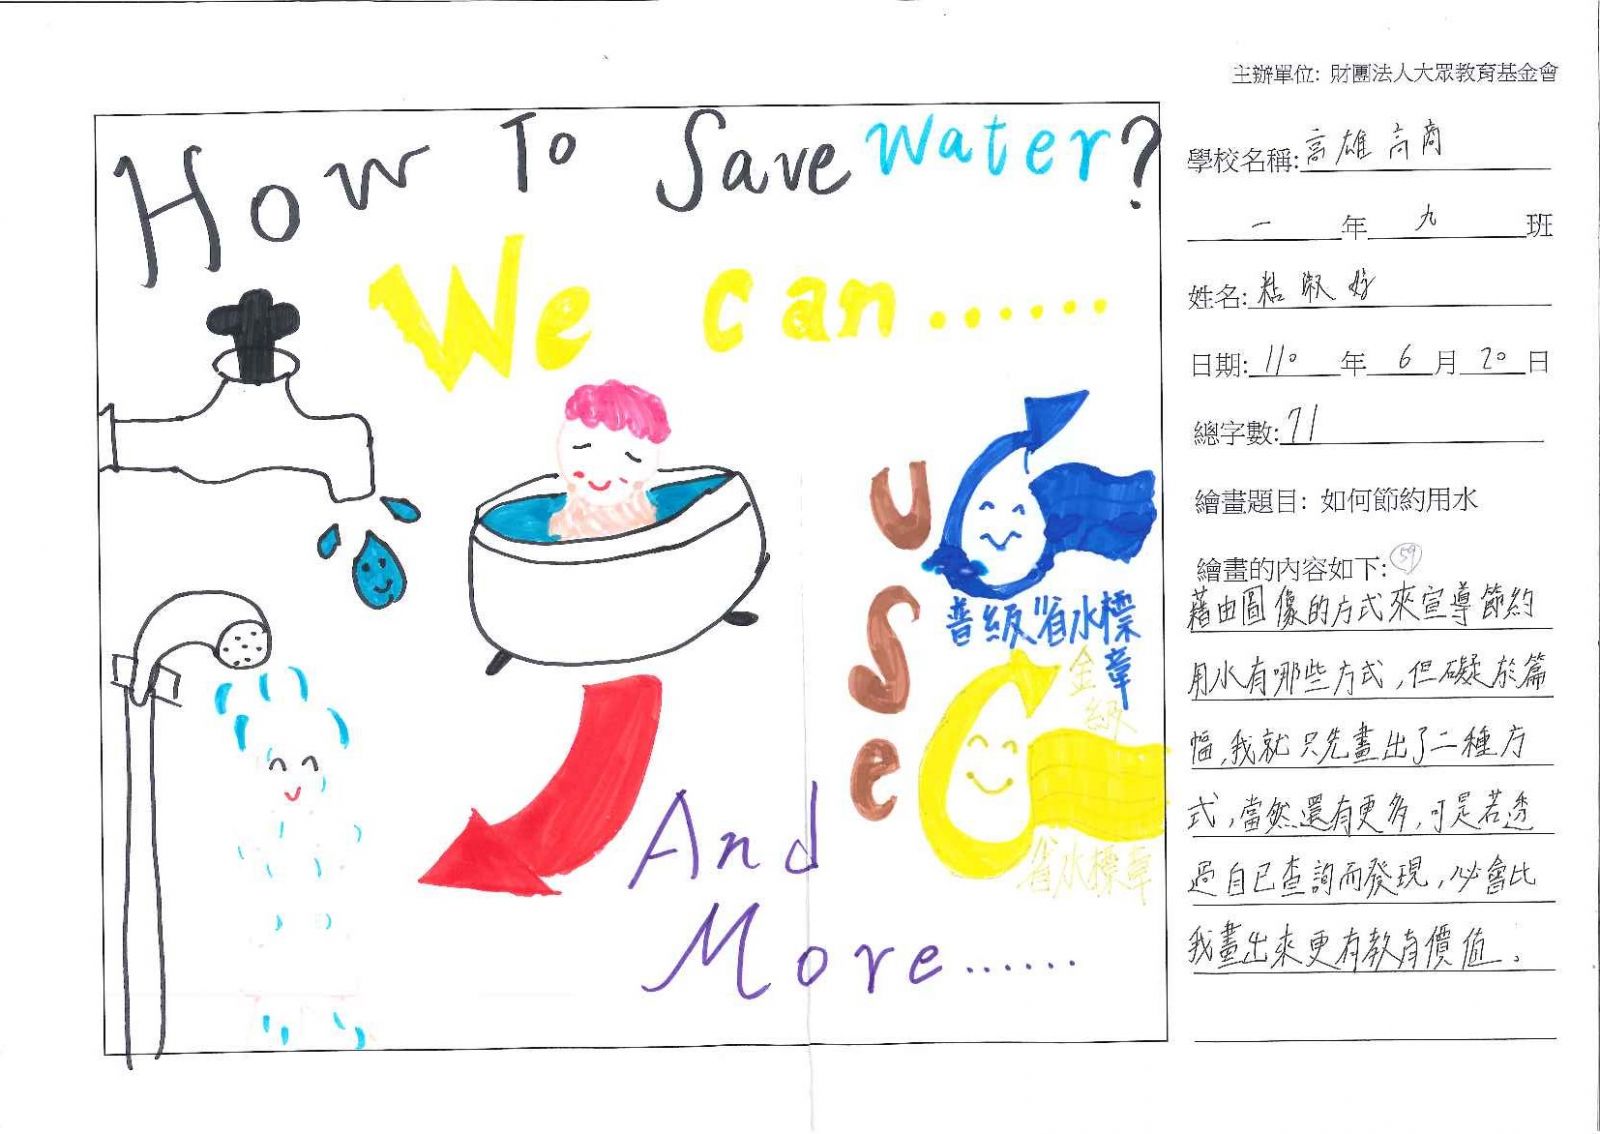 主辦單位: 財團法人大眾教育基金會
How To Save Water?
We can......
use
普級省水標章
金級
省水標章
And
More......
學校名稱:高雄高商
一年九班
姓名:粘淑妤
日期:110年6月20日
總字數:71
繪畫題目: 如何節約用水
繪畫的內容如下: 59
藉由圖像的方式來宣導節約
用水有哪些方式,但礙於篇
幅,我就只先畫出了二種方
式,當然還有更多,可是若透
過自己查詢而發現,必會比
我畫出來更有教育價值。